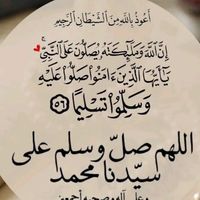 أَعُوذُ بِاللَّهِ مِنَ الشَّيْطَانِ الرَّجِيمِ
إِنَّ اللَّهَ وَمَلَٰٓئِكَتَهُۥ يُصَلُّونَ عَلَى النَّبِيِّ ۚ
يَٰٓأَيُّهَا الَّذِينَ ءَامَنُوا۟ صَلُّوا۟ عَلَيْهِ
وَسَلِّمُوا۟ تَسْلِيمًا ﴿٥٦﴾
اللهم صلّ وسلم على
سيّدنا محمد
وعلى آله وصحبه أجمعين